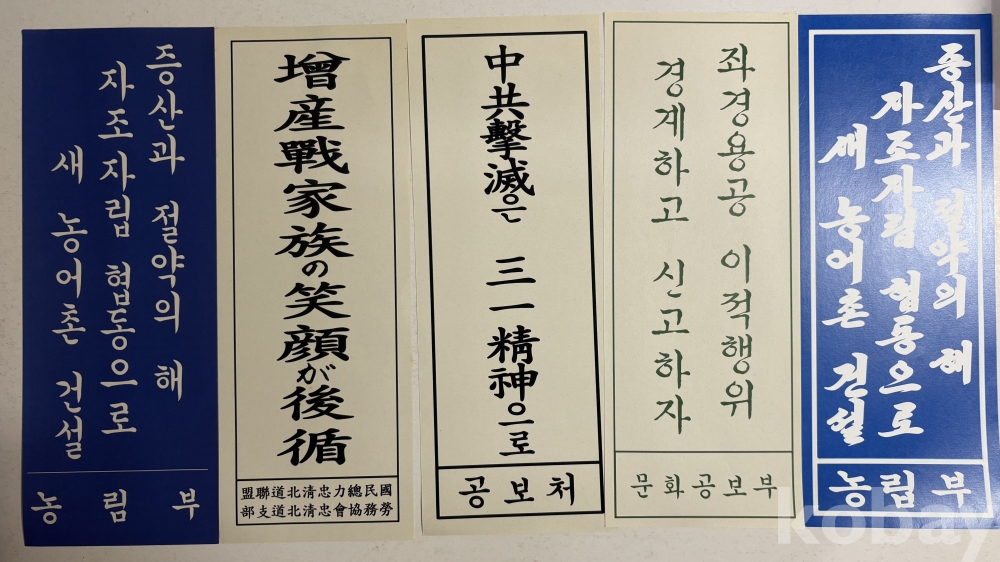 증산과 절약의 해
자조 자립 협동으로
새 농어촌 건설
농림부
增産戰家族の笑顔が後循
盟聯道北清忠力總民國
部支道北清忠會協務勞
中共擊滅은 三一精神으로
공보처
좌경용공 이적행위
경계하고 신고하자
문화공보부
증산과 절약의 해
자조자립 협동으로
새 농어촌 건설
농림부
kobay